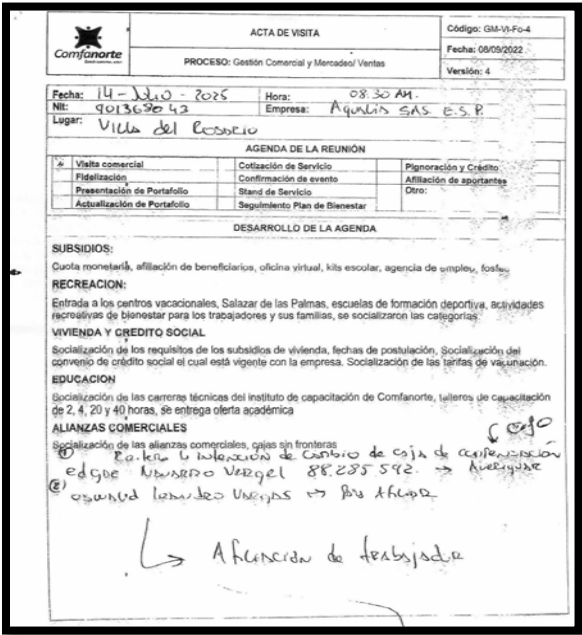 Comfanorte
ACTA DE VISITA
PROCESO: Gestión Comercial y Mercadeo/ Ventas
Código: GM-VI-Fo-4
Fecha: 08/09/2022
Versión: 4
Fecha: 14 - Julio - 2025 Hora: 08:30 AM.
Nit: 901368043 Empresa: Agualis SAS E.S.P.
Lugar: Villa del Rosario
AGENDA DE LA REUNIÓN
x Visita comercial Cotización de Servicio Pignoración y Crédito
Fidelización Confirmación de evento Afiliación de aportantes
Presentación de Portafolio Stand de Servicio Otro:
Actualización de Portafolio Seguimiento Plan de Bienestar
DESARROLLO DE LA AGENDA
SUBSIDIOS:
Cuota monetaria, afiliación de beneficiarios, oficina virtual, kits escolar, agencia de empleo, fosfec
RECREACION:
Entrada a los centros vacacionales, Salazar de las Palmas, escuelas de formación deportiva, actividades
recreativas de bienestar para los trabajadores y sus familias, se socializaron las categorías
VIVIENDA Y CREDITO SOCIAL
Socialización de los requisitos de los subsidios de vivienda, fechas de postulación, Socialización del
convenio de crédito social el cual está vigente con la empresa. Socialización de las tarifas de vacunación.
EDUCACION
Socialización de las carreras técnicas del instituto de capacitación de Comfanorte, talleres de capacitación
de 2, 4, 20 y 40 horas, se entrega oferta académica
ALIANZAS COMERCIALES
Socialización de las alianzas comerciales, cajas sin fronteras
① la intención de cambio de caja de compensación
edgar Navarro Vergel 88.285.592. → Averiguar
② oswald leandro Vargas → Por Afiliar
↳ Afiliación de trabajador